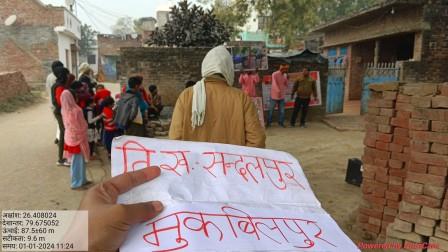 वि.ख. सन्दलपुर
मुकविलपुर
अक्षांश: 26.408024
देशान्तर: 79.675052
ऊंचाई: 87.5±60 m
सटीकता: 9.6 m
समय: 01-01-2024 11:24
Powered by NoteCam